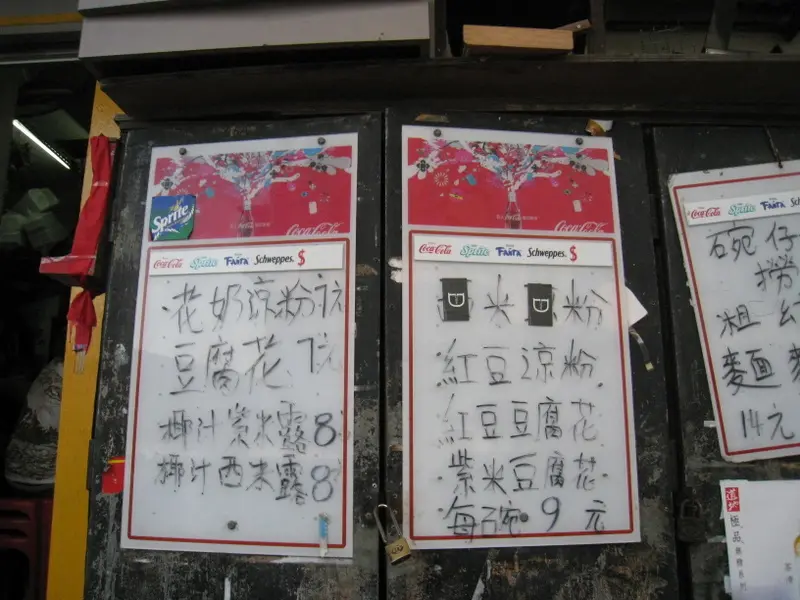 Sprite
Coca-Cola
Coca-Cola Sprite Fanta Schweppes $
花奶涼粉7元
豆腐花 7元
椰汁紫米露8
椰汁西米露8
Coca-Cola
Coca-Cola
Coca-Cola Sprite Fanta Schweppes $
米 粉
紅豆涼粉
紅豆豆腐花
紫米豆腐花
每碗 9 元
Coca-Cola Sprite Fanta
碗仔
撈
粗
麵
14元
極品